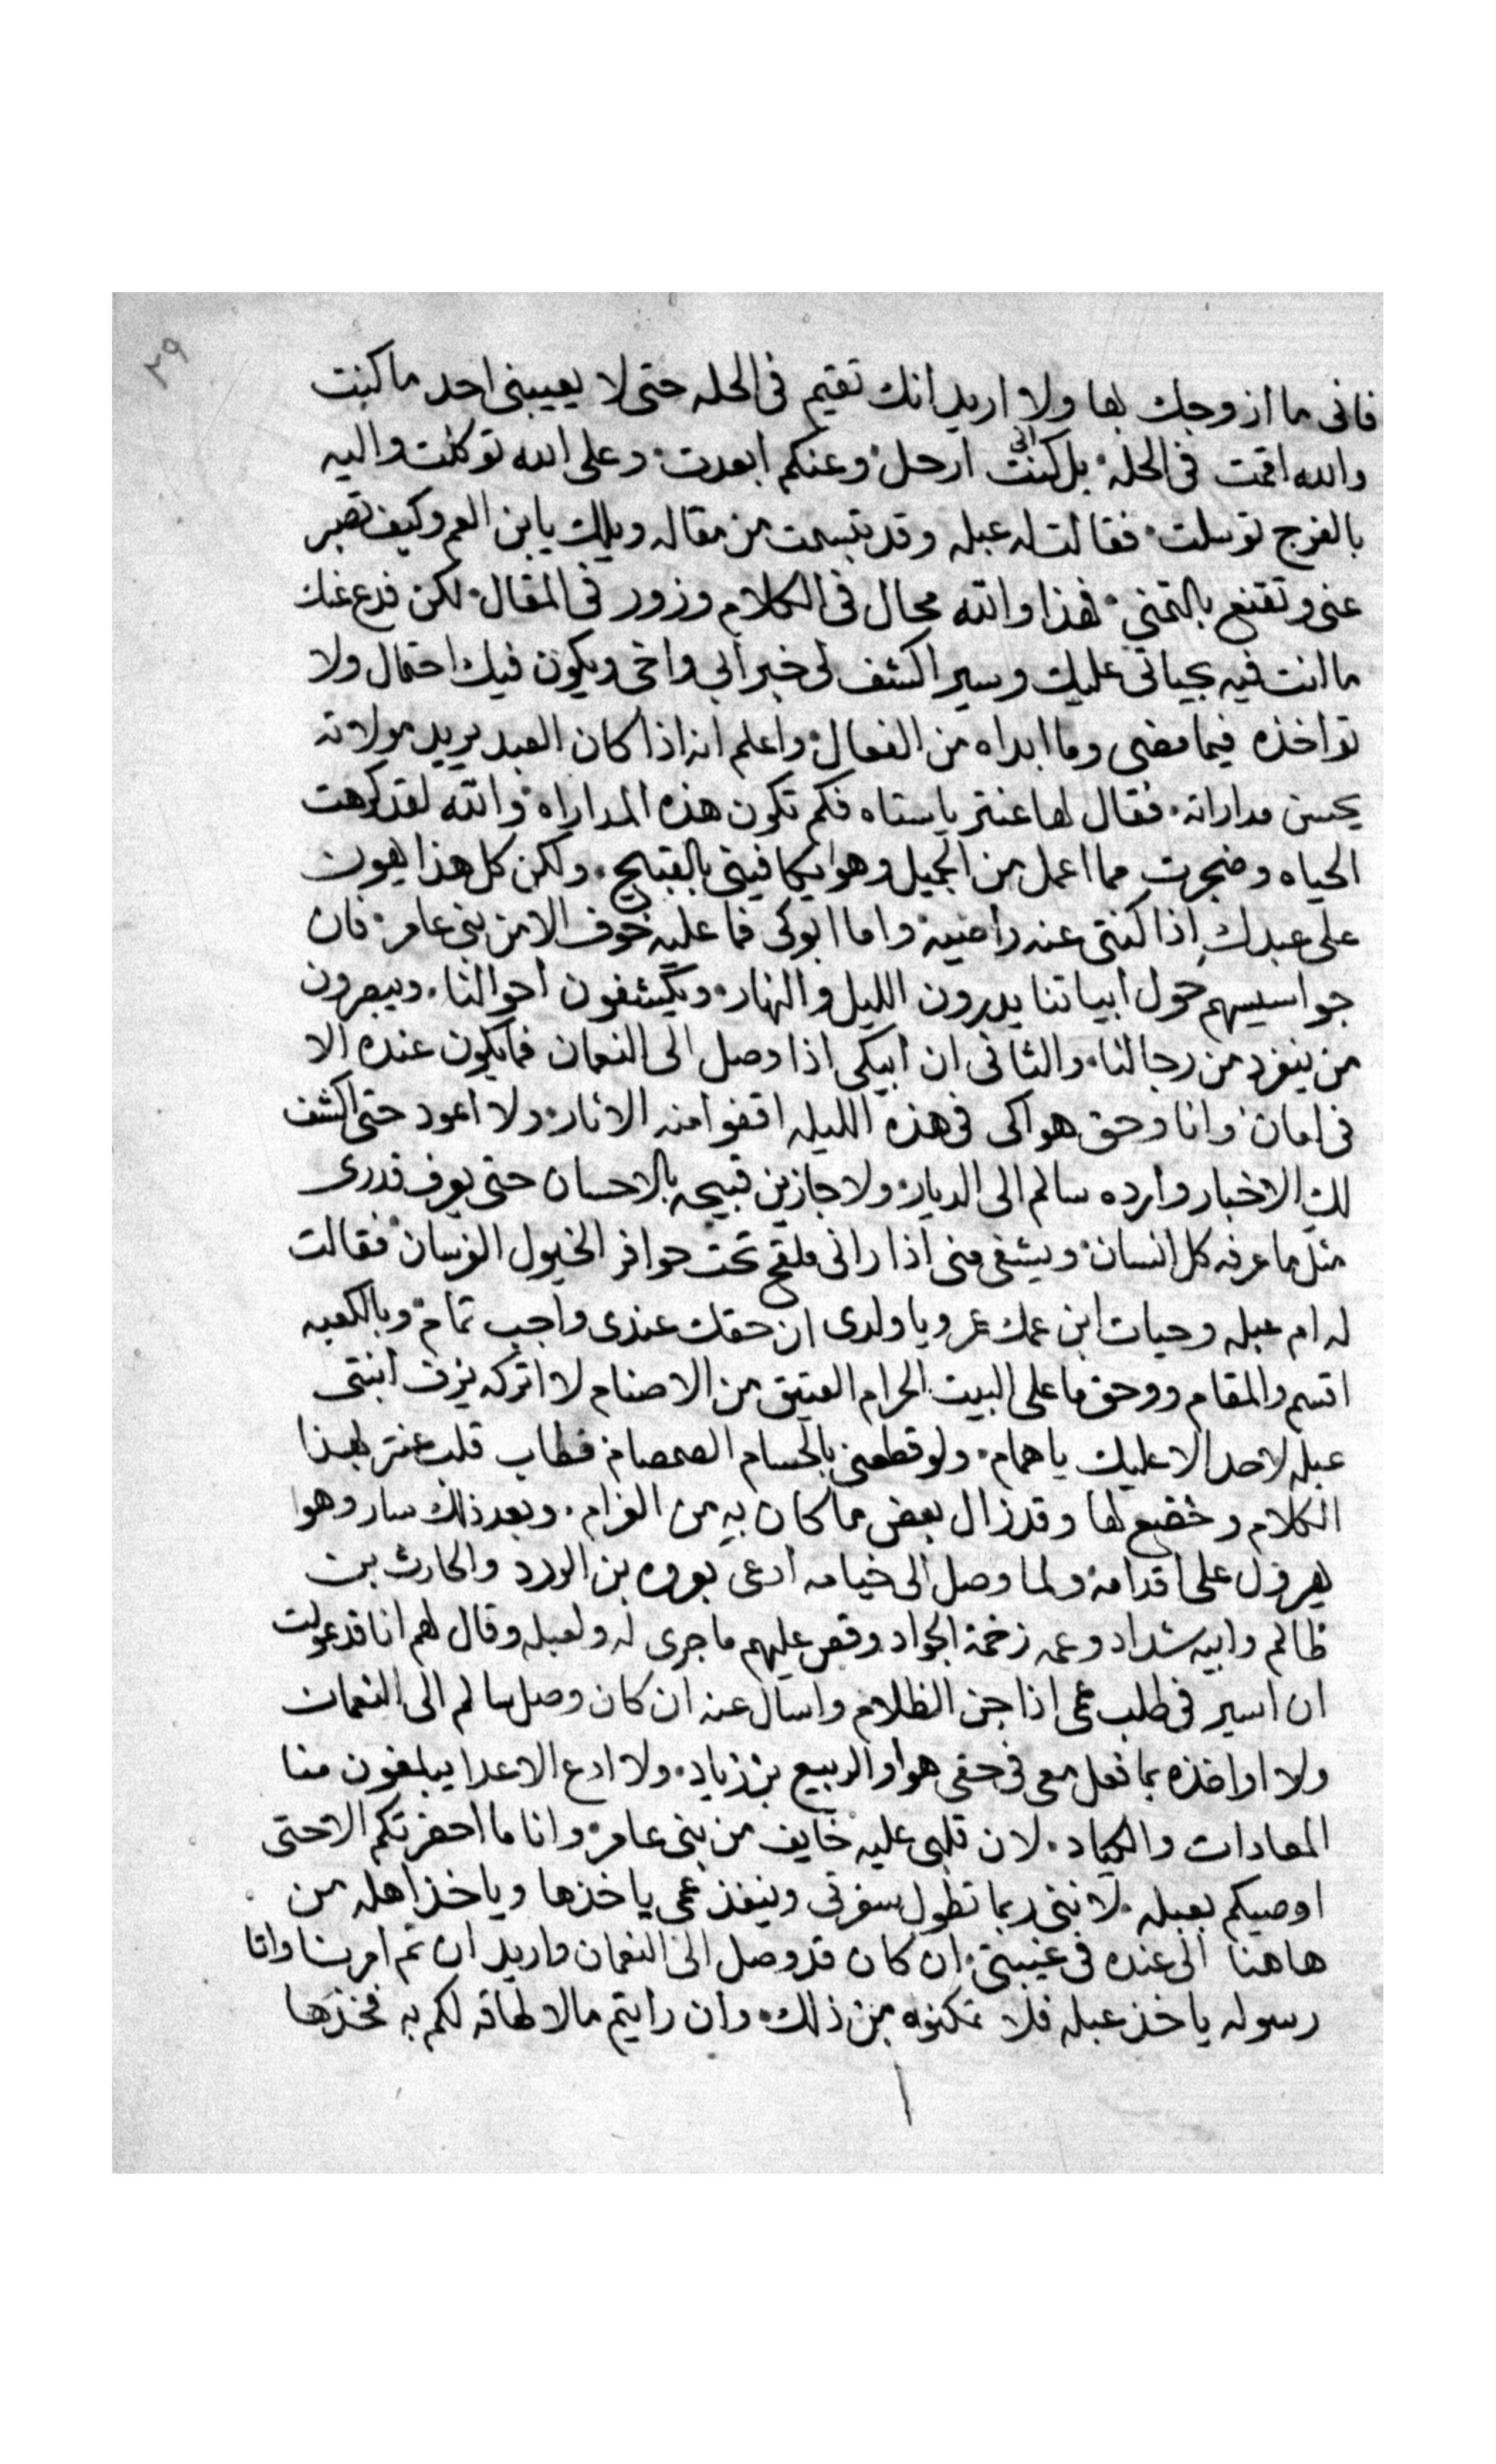 ٢٩
فانى ما ازوجك بها ولا اريد انك تقيم فى الحله حتى لا يعيبنى احد ما كنت
والله اقمت فى الحله بل كنت انى ارحل وعنكم ابعدت وعلى الله توكلت واليه
بالفرج توسلت فقالت له عبله وقد تبسمت من مقاله ويلك يا بن العم وكيف تصبر
عنى وتقنع بالتمني فهذا والله محال فى الكلام وزور فى المقال لكن فدع عنك
ما انت فيه بحياتى عليك وسير اكشف لى خبر ابي واخى ويكون فيك احتمال ولا
تواخذه فيما مضى وما ابداه من الفعال واعلم انه اذا كان العبد يريد مولاته
يحسن مداراته فقال لها عنتر ياستاه فكم تكون هذه المداراه والله لقد كرهت
الحياه وضجرت مما اعمل من الجميل وهوا يكافينى بالقبيح ولكن كل هذا يهون
على عبدك اذا كنتى عنه راضيه واما ابوكى فما عليه خوف الا من بنى عامر فان
جواسيسهم حول ابياتنا يدورون الليل والنهار ويكشفون احوالنا ويبصرون
من ينفرد من رجالنا والثانى ان ابيكى اذا وصل الى النعمان فما يكون عنده الا
فى امان وانا وحق هواكى فى هذه الليله اقفوا منه الاثار ولا اعود حتى اكشف
لك الاخبار وارده سالم الى الديار ولا جازين قبيحه بالاحسان حتى يعرف قدرى
مثل ما عرفه كل انسان ويشفى منى اذا رانى ملقح تحت حوافر الخيول الفرسان فقالت
له ام عبله وحيات ابن عمك عمرو يا ولدى ان حقك عندى واجب تمام وبالكعبه
اقسم والمقام ووحق ما على البيت الحرام العتيق من الاصنام لا اتركه يزف ابنتى
عبله لاحد الا عليك ياهمام ولو قطعنى بالحسام الصمصام فطاب قلب عنتر بهذا
الكلام وخضع لها وقد زال بعض ما كان به من الغرام وبعد ذلك سار وهوا
يهرول على اقدامه ولما وصل الى خيامه ادعى بعروه بن الورد والحارث بن
ظالم وابيه شداد وعمه زخمة الجواد وقص عليهم ما جرى له ولعبله وقال لهم انا قد عولت
ان اسير فى طلب عمى اذا جن الظلام واسال عنه ان كان وصل سالم الى النعمان
ولا اواخذه بما فعل معى فى حقى هوا والربيع بن زياد ولا ادع الاعدا يبلغون منا
المعادات والكياد لان قلبى عليه خايف من بنى عامر وانا ما احضرتكم الا حتى
اوصيكم بعبله لاننى ربما تطول سفرتى وينفذ عمى ياخذها وياخذ اهله من
هاهنا الى عنده فى غيبتى ان كان قد وصل الى النعمان واريد ان تم امرنا واتا
رسوله ياخذ عبله فلا تمكنوه من ذلك وان رايتم مالا لطاقه لكم به فخذها